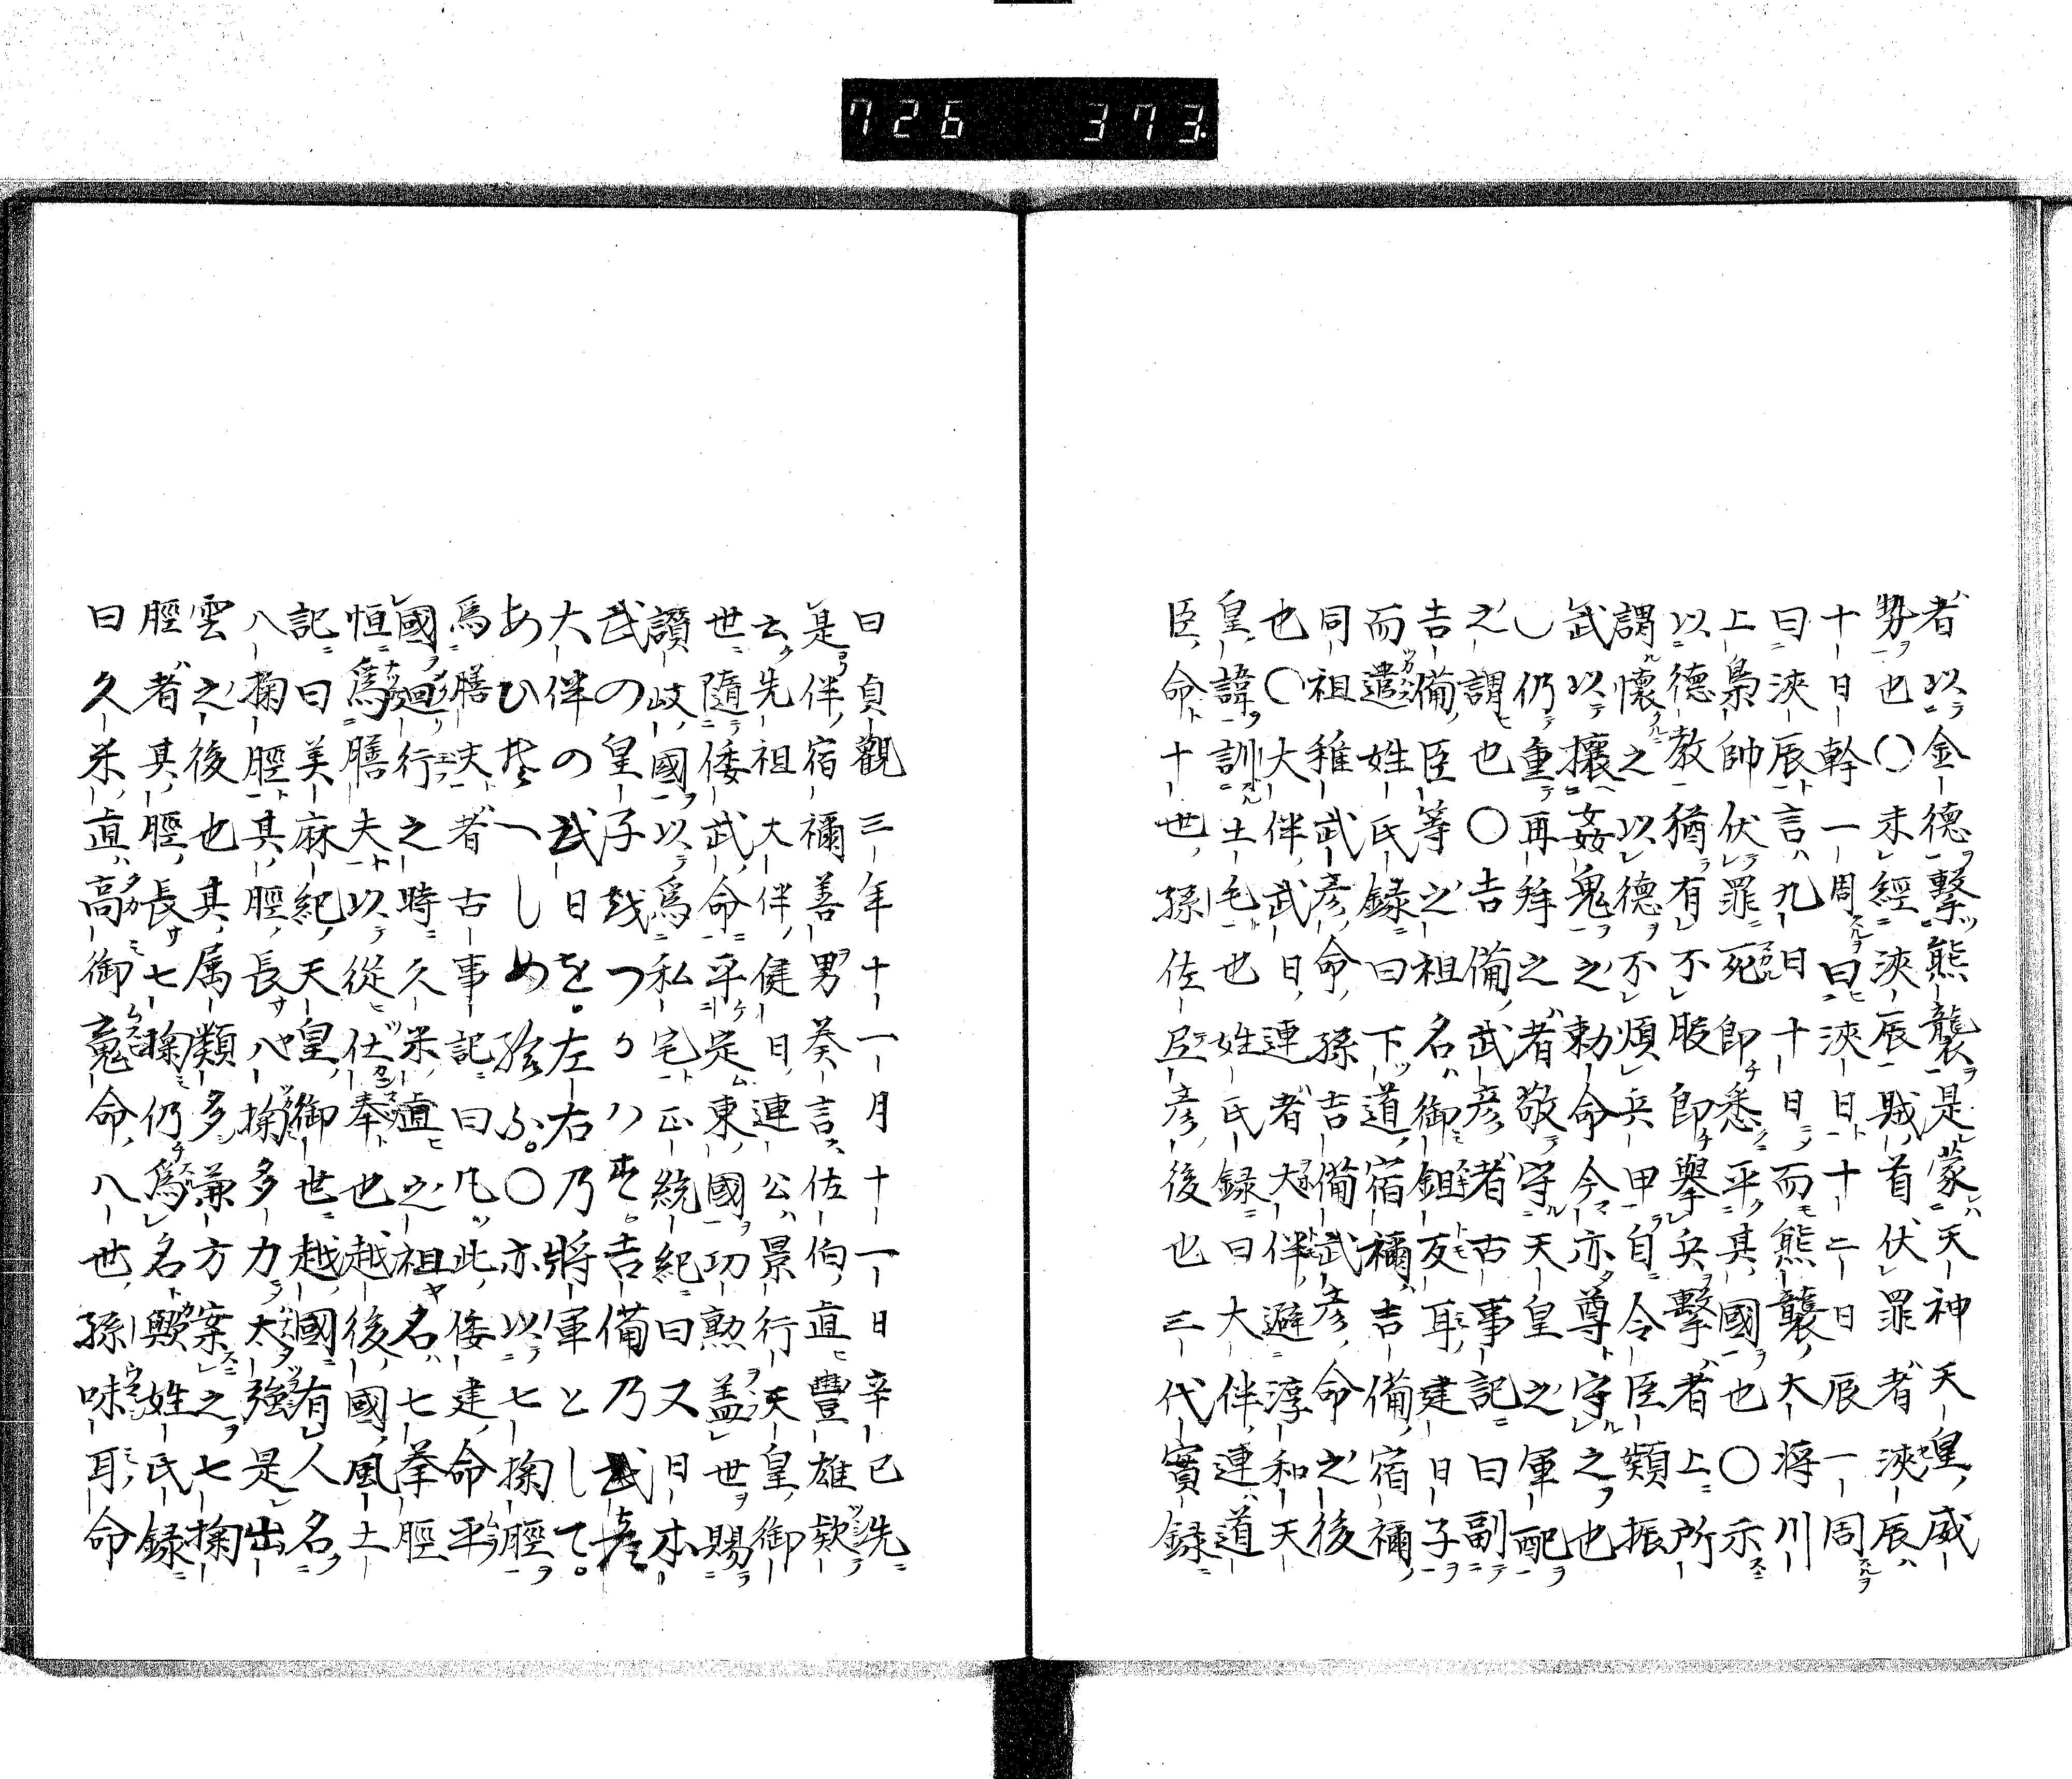 726 373.
者以金德擊熊襲是蒙天神天皇威
勢也〇未經浹辰賊首伏罪者浹辰
十日幹一周曰浹日十二日辰一周
曰浹辰言九日十日而熊襲大将川
上梟帥伏罪死即悉平其國也〇示
以德教猶有不服即擧兵擊者上所
謂懷之以德不煩兵甲自令臣類振
武以攘姦鬼之勅命今亦尊守之也
仍重再拜之者敬守天皇之軍配
之謂也〇吉備武彦者古事記曰副
吉備臣等之祖名御鉏友耳建日子
而遣姓氏録曰下道宿禰吉備宿禰
同祖稚武彦命孫吉備武彦命之後
也〇大伴武日連者大伴避淳和天
皇諱訓土毛也姓氏録曰大伴連道
臣命十世孫佐弖彦後也三代實録
曰貞觀三年十一月十一日辛巳先
是伴宿禰善男奏言佐伯直豊雄欵
云先祖大伴健日連公景行天皇御
世隨倭武命平定東國功勲盖世賜
讚岐國以爲私宅正統紀曰又日本
武の皇子越つかハす吉備乃武彦
大伴の武日を左右乃將軍として
あひそへしめ給ふ〇亦以七掬脛
爲膳夫者古事記曰凡此倭建命平
國廻行之時久米直之祖名七拳脛
恒爲膳夫以從仕奉也越後國風土
記曰美麻紀天皇御世越國有人名
八掬脛其脛長八掬多力太強是出
雲之後也其属類多兼方案之七掬
脛者其脛長七掬仍爲名歟姓氏録
曰久米直高御䰟命八世孫味耳命